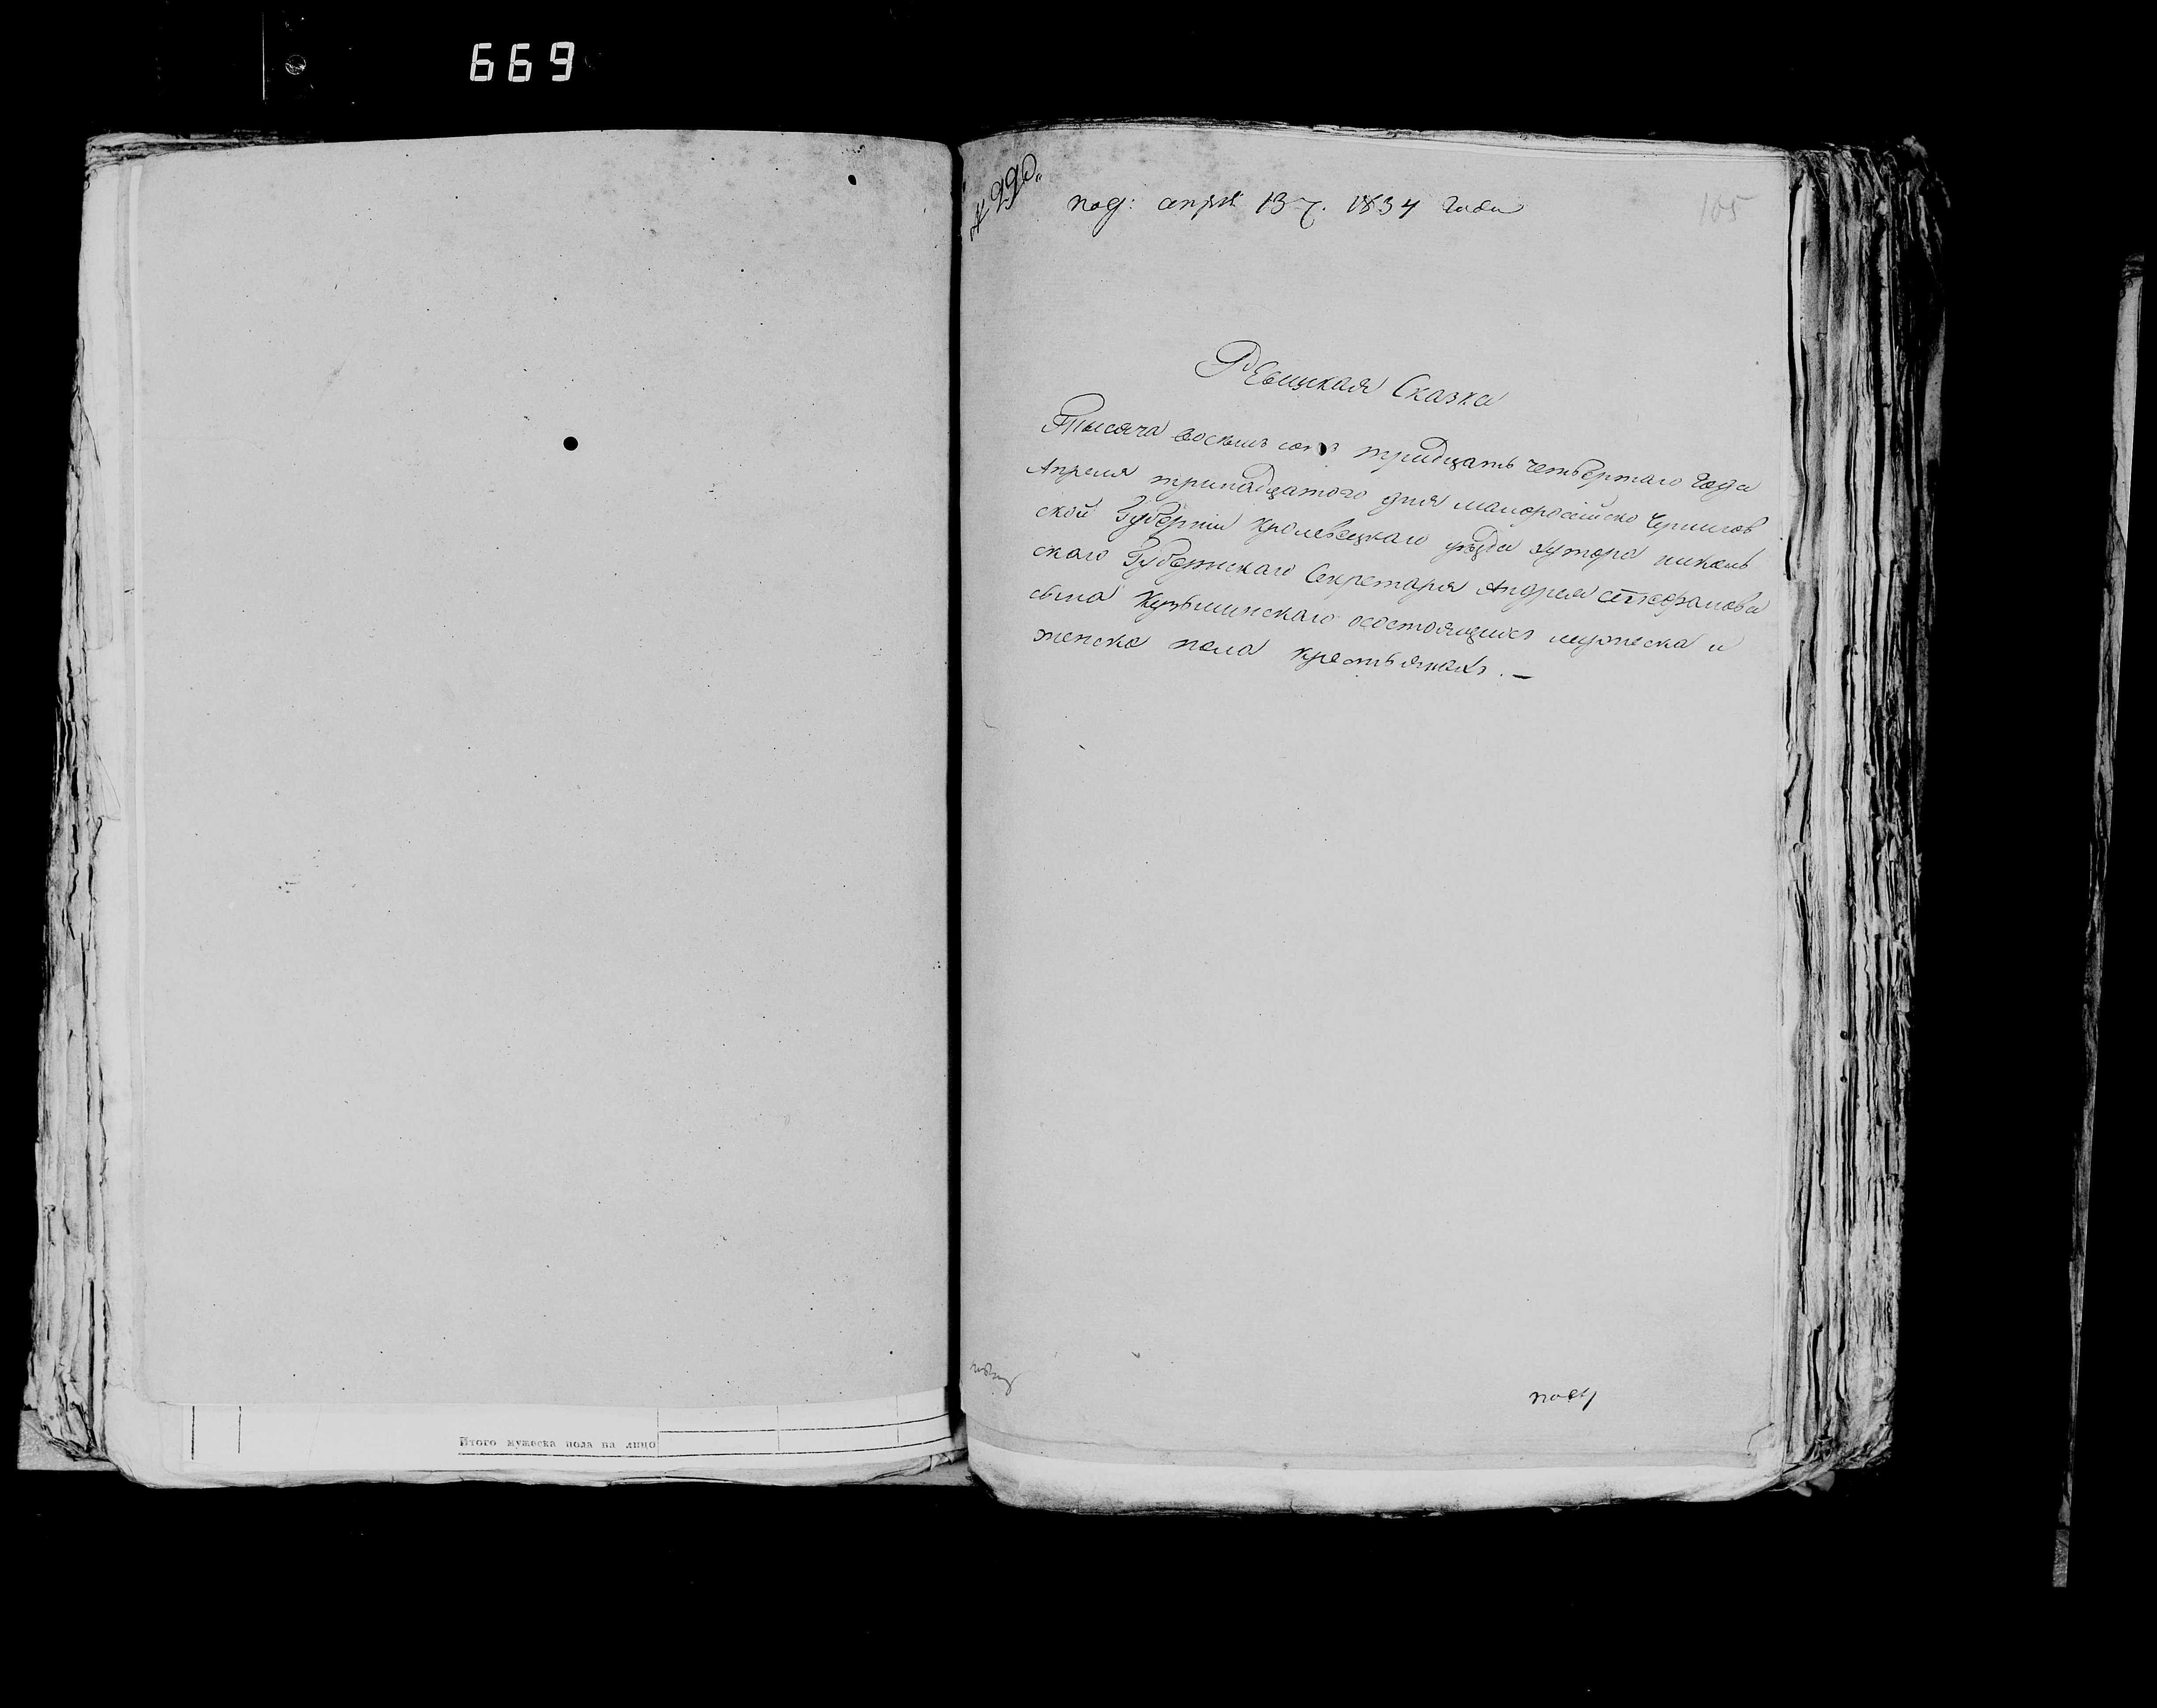 669
№ 990.
под: апрѣл 13 ч. 1834 года
105
Ревизкая Сказка
Тысяча восемъ сотъ тридцать четвертаго Года
Апреля тринадцатого дня малороссійско Чернигов
ской Губерніи Кролевецкаго уѣзда хутора николь
скаго Губернскаго Секретаря Андрея Стефанова
сына Кузьминскаго осостоящихъ мужеска и
женска пола крестьянахъ. —
Итого мужеска пола на лицо